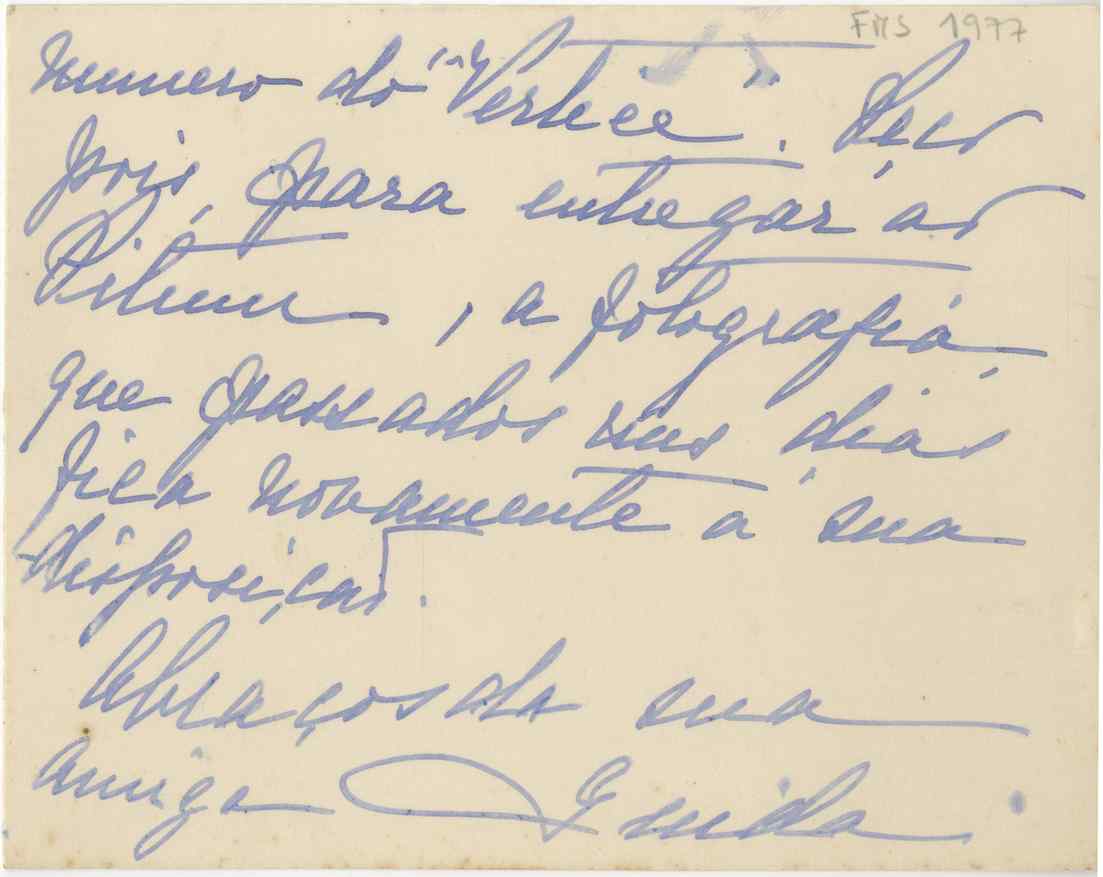 FMS 1977
numero do "Vertice". Peço
pois, para entregar ao
, a fotografia
que passados uns dias
fica novamente a sua
disposição.
Abraços da sua
amiga Guida